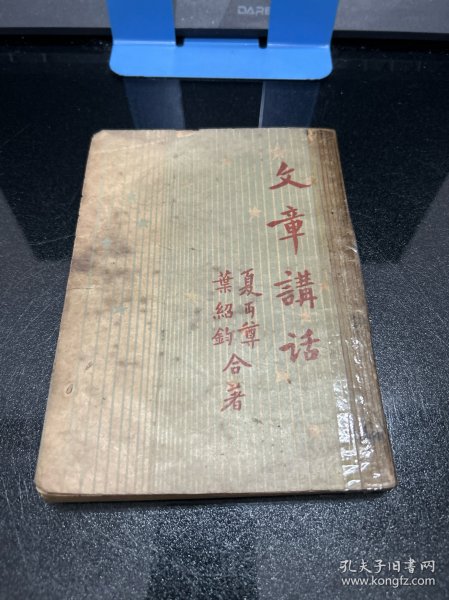 文章講話
夏丏尊
葉紹鈞
合著
DARE
孔夫子旧书网
www.kongfz.com